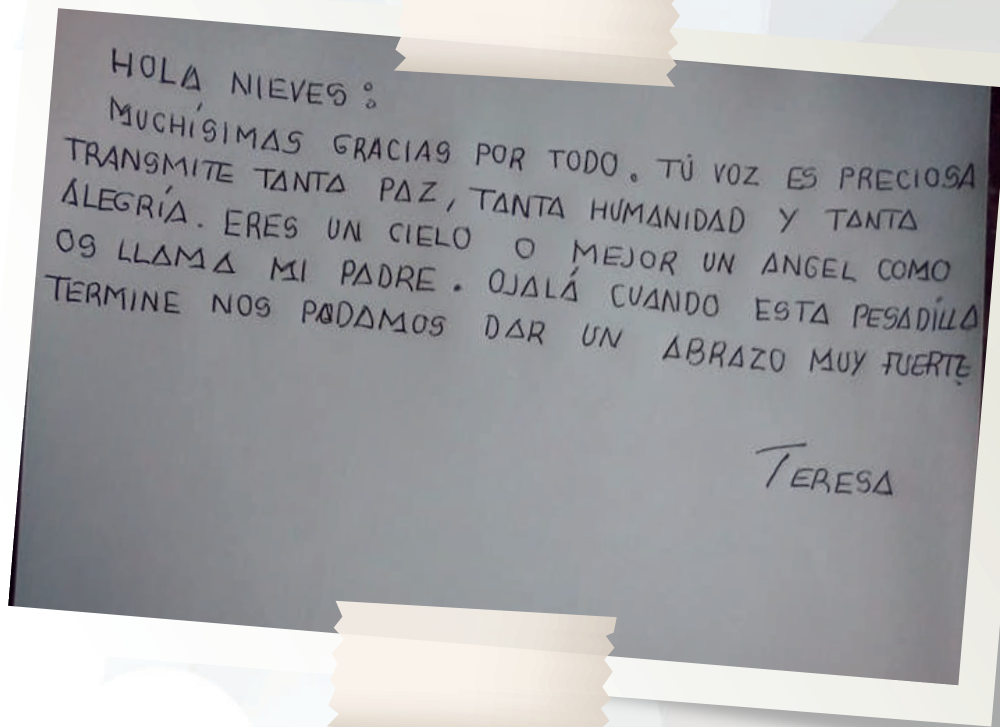 HOLA NIEVES:
MUCHÍSIMAS GRACIAS POR TODO. TÚ VOZ ES PRECIOSA
TRANSMITE TANTA PAZ, TANTA HUMANIDAD Y TANTA
ALEGRÍA. ERES UN CIELO O MEJOR UN ANGEL COMO
OS LLAMA MI PADRE. OJALÁ CUANDO ESTA PESADILLA
TERMINE NOS PODAMOS DAR UN ABRAZO MUY FUERTE.
TERESA